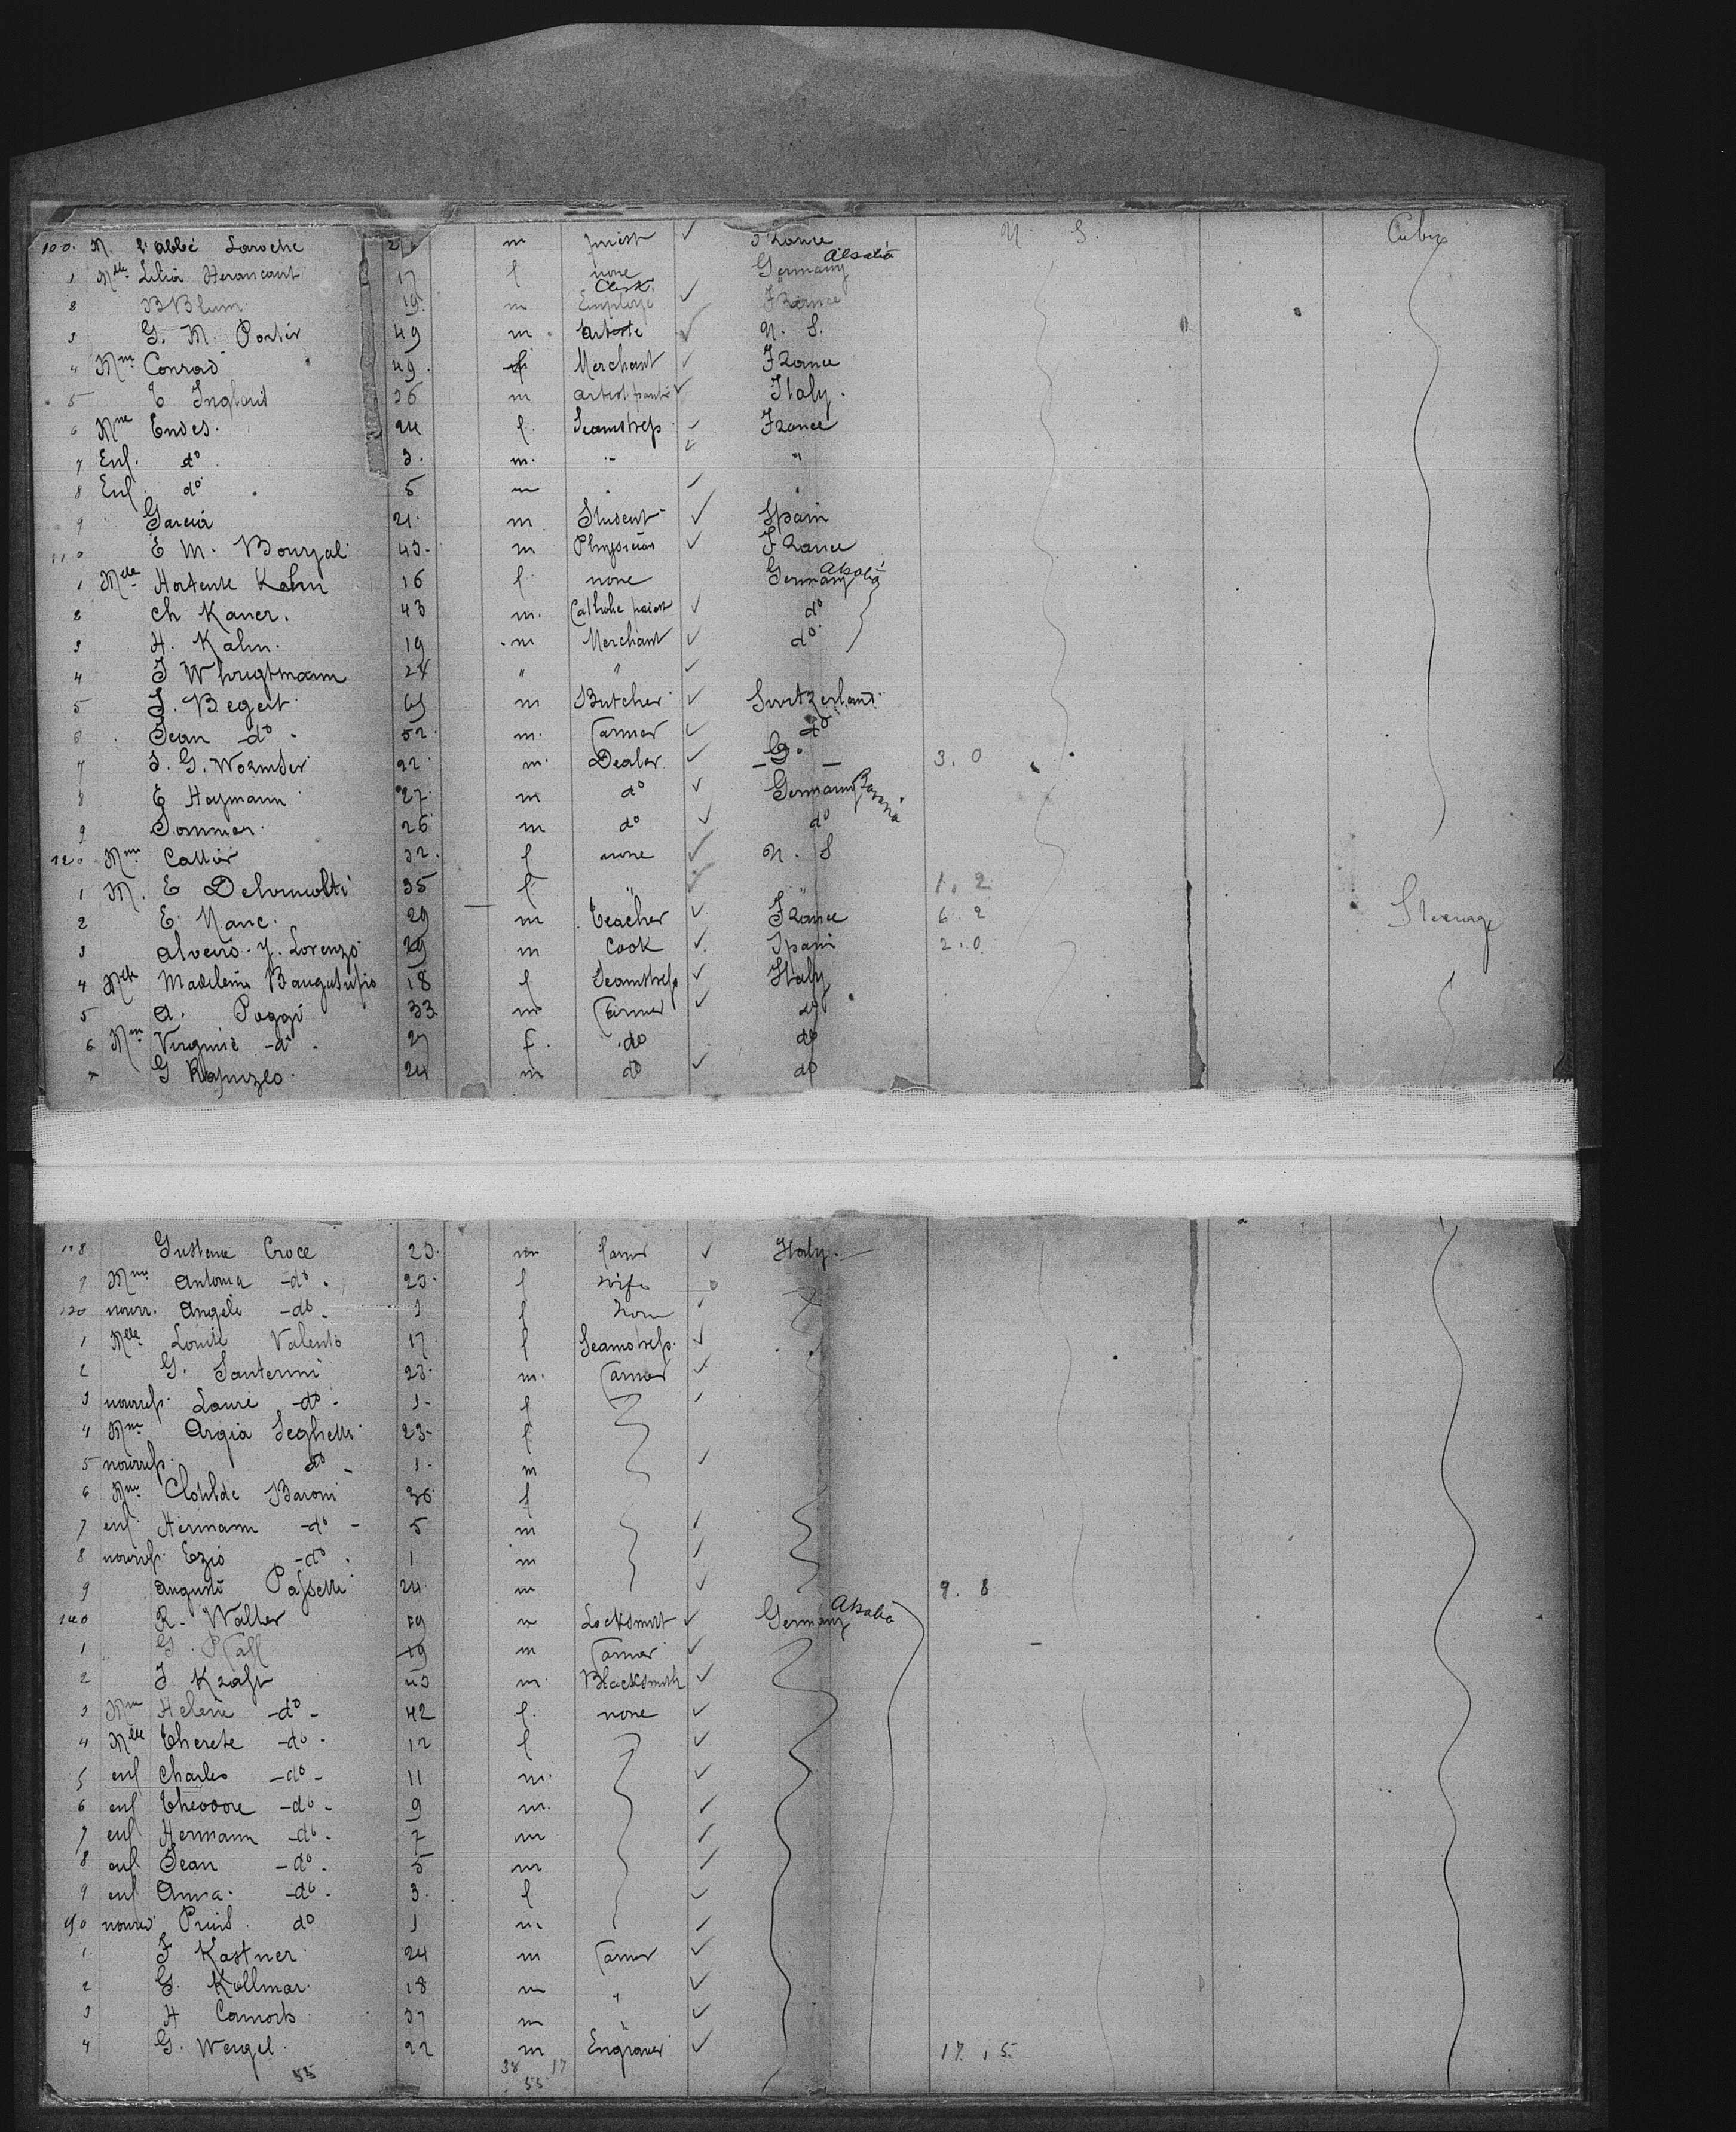 100. M. l'abbé Laroche m priest ✓ France U. S. Cabin
1 Mlle Lilia Herancourt 17 f none Germany Alsatia
2 B Blum 19. m Clerk Employe ✓ France
3 G. M. Porter 49 m artiste ✓ U. S.
4 Mme Conrad 49. f Merchant ✓ France
5 E 36 m artist ✓ Italy.
6 Mme Endes. 24 f. Seamstress ✓ France
7 Enf. do 3. m. " ✓ "
8 Enf. do 5 m " ✓ "
9 Garcia 21. m Student ✓ Spain
110 E M. 43. m Physician ✓ France
1 Mlle Hortense Kahn 16 f none Germany Alsatia
2 Ch Kaner. 43 m. Catholic priest ✓ do
3 H. Kahn. 19 m Merchant ✓ do
4 24 " " ✓
5 J. Begert m Butcher ✓ Switzerland
6 Jean -do- 52. m. Farmer ✓ do
7 J. G. Wormser 22. m. Dealer ✓ 3. 0
8 E Haymann 27. m do ✓ Germany Bavaria
9 Sommer. 26 m do ✓ do
120 Mme 32. f none ✓ U. S
1 M. E 35 f " ✓ " 1. 2
2 E. Nanc. 29 m Teacher ✓ France 6. 2 Steerage
3 Alveiro. y. Lorenzo 29 m Cook ✓ Spain 2. 0
4 Mlle Madeleine 18 f Seamstress ✓ Italy
5 A. Poggi 33 m Farmer ✓ do
6 Mme Virginie -do. 27 f. do do
7 G 24 m do ✓ do
128 Gustave Croce 25. m farmer ✓ Italy.
9 Mme Antonia -do. 25. f wife
130 nourr. Angele -do. 1 f none ✓
1 Mlle Louise Valente 17 f Seamstress. ✓
2 G. Santerini 23. m. Farmer ✓
3 nourrss. Laure -do- 1. f ✓
4 Mme Argia Seghetti 23. f
5 nourrss. do - 1. m ✓
6 Mme Clotilde Baroni 36 f
7 enf. Hermann -do - 5 m ✓
8 nourrss. Ezio -do. 1 m ✓
9 Auguste Passetti 24. m ✓ 9. 8
140 R. Walter 19 m Locksmith ✓ Germany Alsatia
1 G. 19 m Farmer ✓
2 J. Kraft 45 m. Blacksmith ✓
3 Mme Helene -do - 42 f. none ✓
4 Mlle Therese -do. 12 f ✓
5 enf Charles -do - 11 m. ✓
6 enf Theodore -do - 9 m. ✓
7 enf Hermann -do. 7 m ✓
8 enf Jean -do. 5 m ✓
9 enf Anna. -do. 3. f ✓
150 do 1 m ✓
1. F Kastner 24 m Farmer ✓
2 G. Kollmar. 18 m " ✓
3 H 37 m " ✓
4 G. Wengel. 22 m Engraver ✓ 17. 5
55 38 17
55